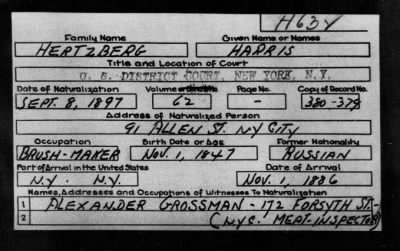 H634
Family Name Given Name or Names
HERTZBERG HARRIS
Title and Location of Court
U. S. DISTRICT COURT, NEW YORK, N.Y.
Date of Naturalization Volume Page No. Copy of Record No.
SEPT. 8, 1897 62 - 380-379
Address of Naturalized Person
91 ALLEN ST. NY CITY
Occupation Birth Date or Age Former Nationality
BRUSH-MAKER NOV. 1, 1847 RUSSIAN
Port of Arrival in the United States Date of Arrival
N.Y. N.Y. NOV. 1, 1886
Names, Addresses and Occupations of Witnesses To Naturalization
1 ALEXANDER GROSSMAN - 172 FORSYTH ST. -
2 (N.Y.C. MEAT-INSPECTOR)